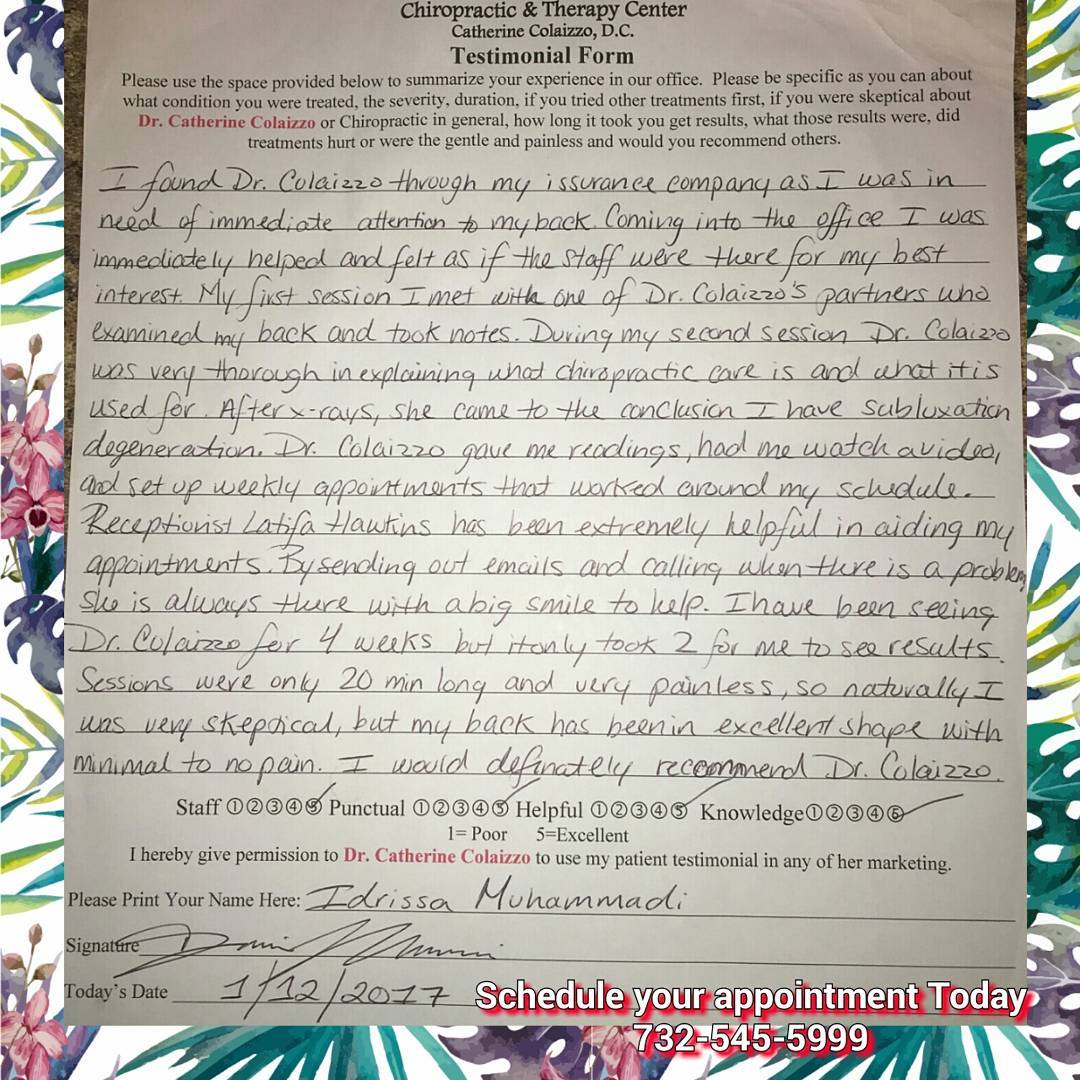 Chiropractic & Therapy Center
Catherine Colaizzo, D.C.
Testimonial Form
Please use the space provided below to summarize your experience in our office. Please be specific as you can about
what condition you were treated, the severity, duration, if you tried other treatments first, if you were skeptical about
Dr. Catherine Colaizzo or Chiropractic in general, how long it took you get results, what those results were, did
treatments hurt or were the gentle and painless and would you recommend others.
I found Dr. Colaizzo through my issurance company as I was in
need of immediate attention to my back. Coming into the office I was
immediately helped and felt as if the staff were there for my best
interest. My first session I met with one of Dr. Colaizzo's partners who
examined my back and took notes. During my second session Dr. Colaizzo
was very thorough in explaining what chiropractic care is and what it is
used for. After x-rays, she came to the conclusion I have subluxation
degeneration. Dr. Colaizzo gave me readings, had me watch a video,
and set up weekly appointments that worked around my schedule.
Receptionist Latifa Hawkins has been extremely helpful in aiding my
appointments. By sending out emails and calling when there is a problem
she is always there with a big smile to help. I have been seeing
Dr. Colaizzo for 4 weeks but it only took 2 for me to see results.
Sessions were only 20 min long and very painless, so naturally I
was very skeptical, but my back has been in excellent shape with
minimal to no pain. I would definately recommend Dr. Colaizzo.
Staff ①②③④⑤ Punctual ①②③④⑤ Helpful ①②③④⑤ Knowledge①②③④⑤
1= Poor 5=Excellent
I hereby give permission to Dr. Catherine Colaizzo to use my patient testimonial in any of her marketing.
Please Print Your Name Here: Idrissa Muhammadi
Signature
Today's Date 1/12/2017
Schedule your appointment Today
732-545-5999